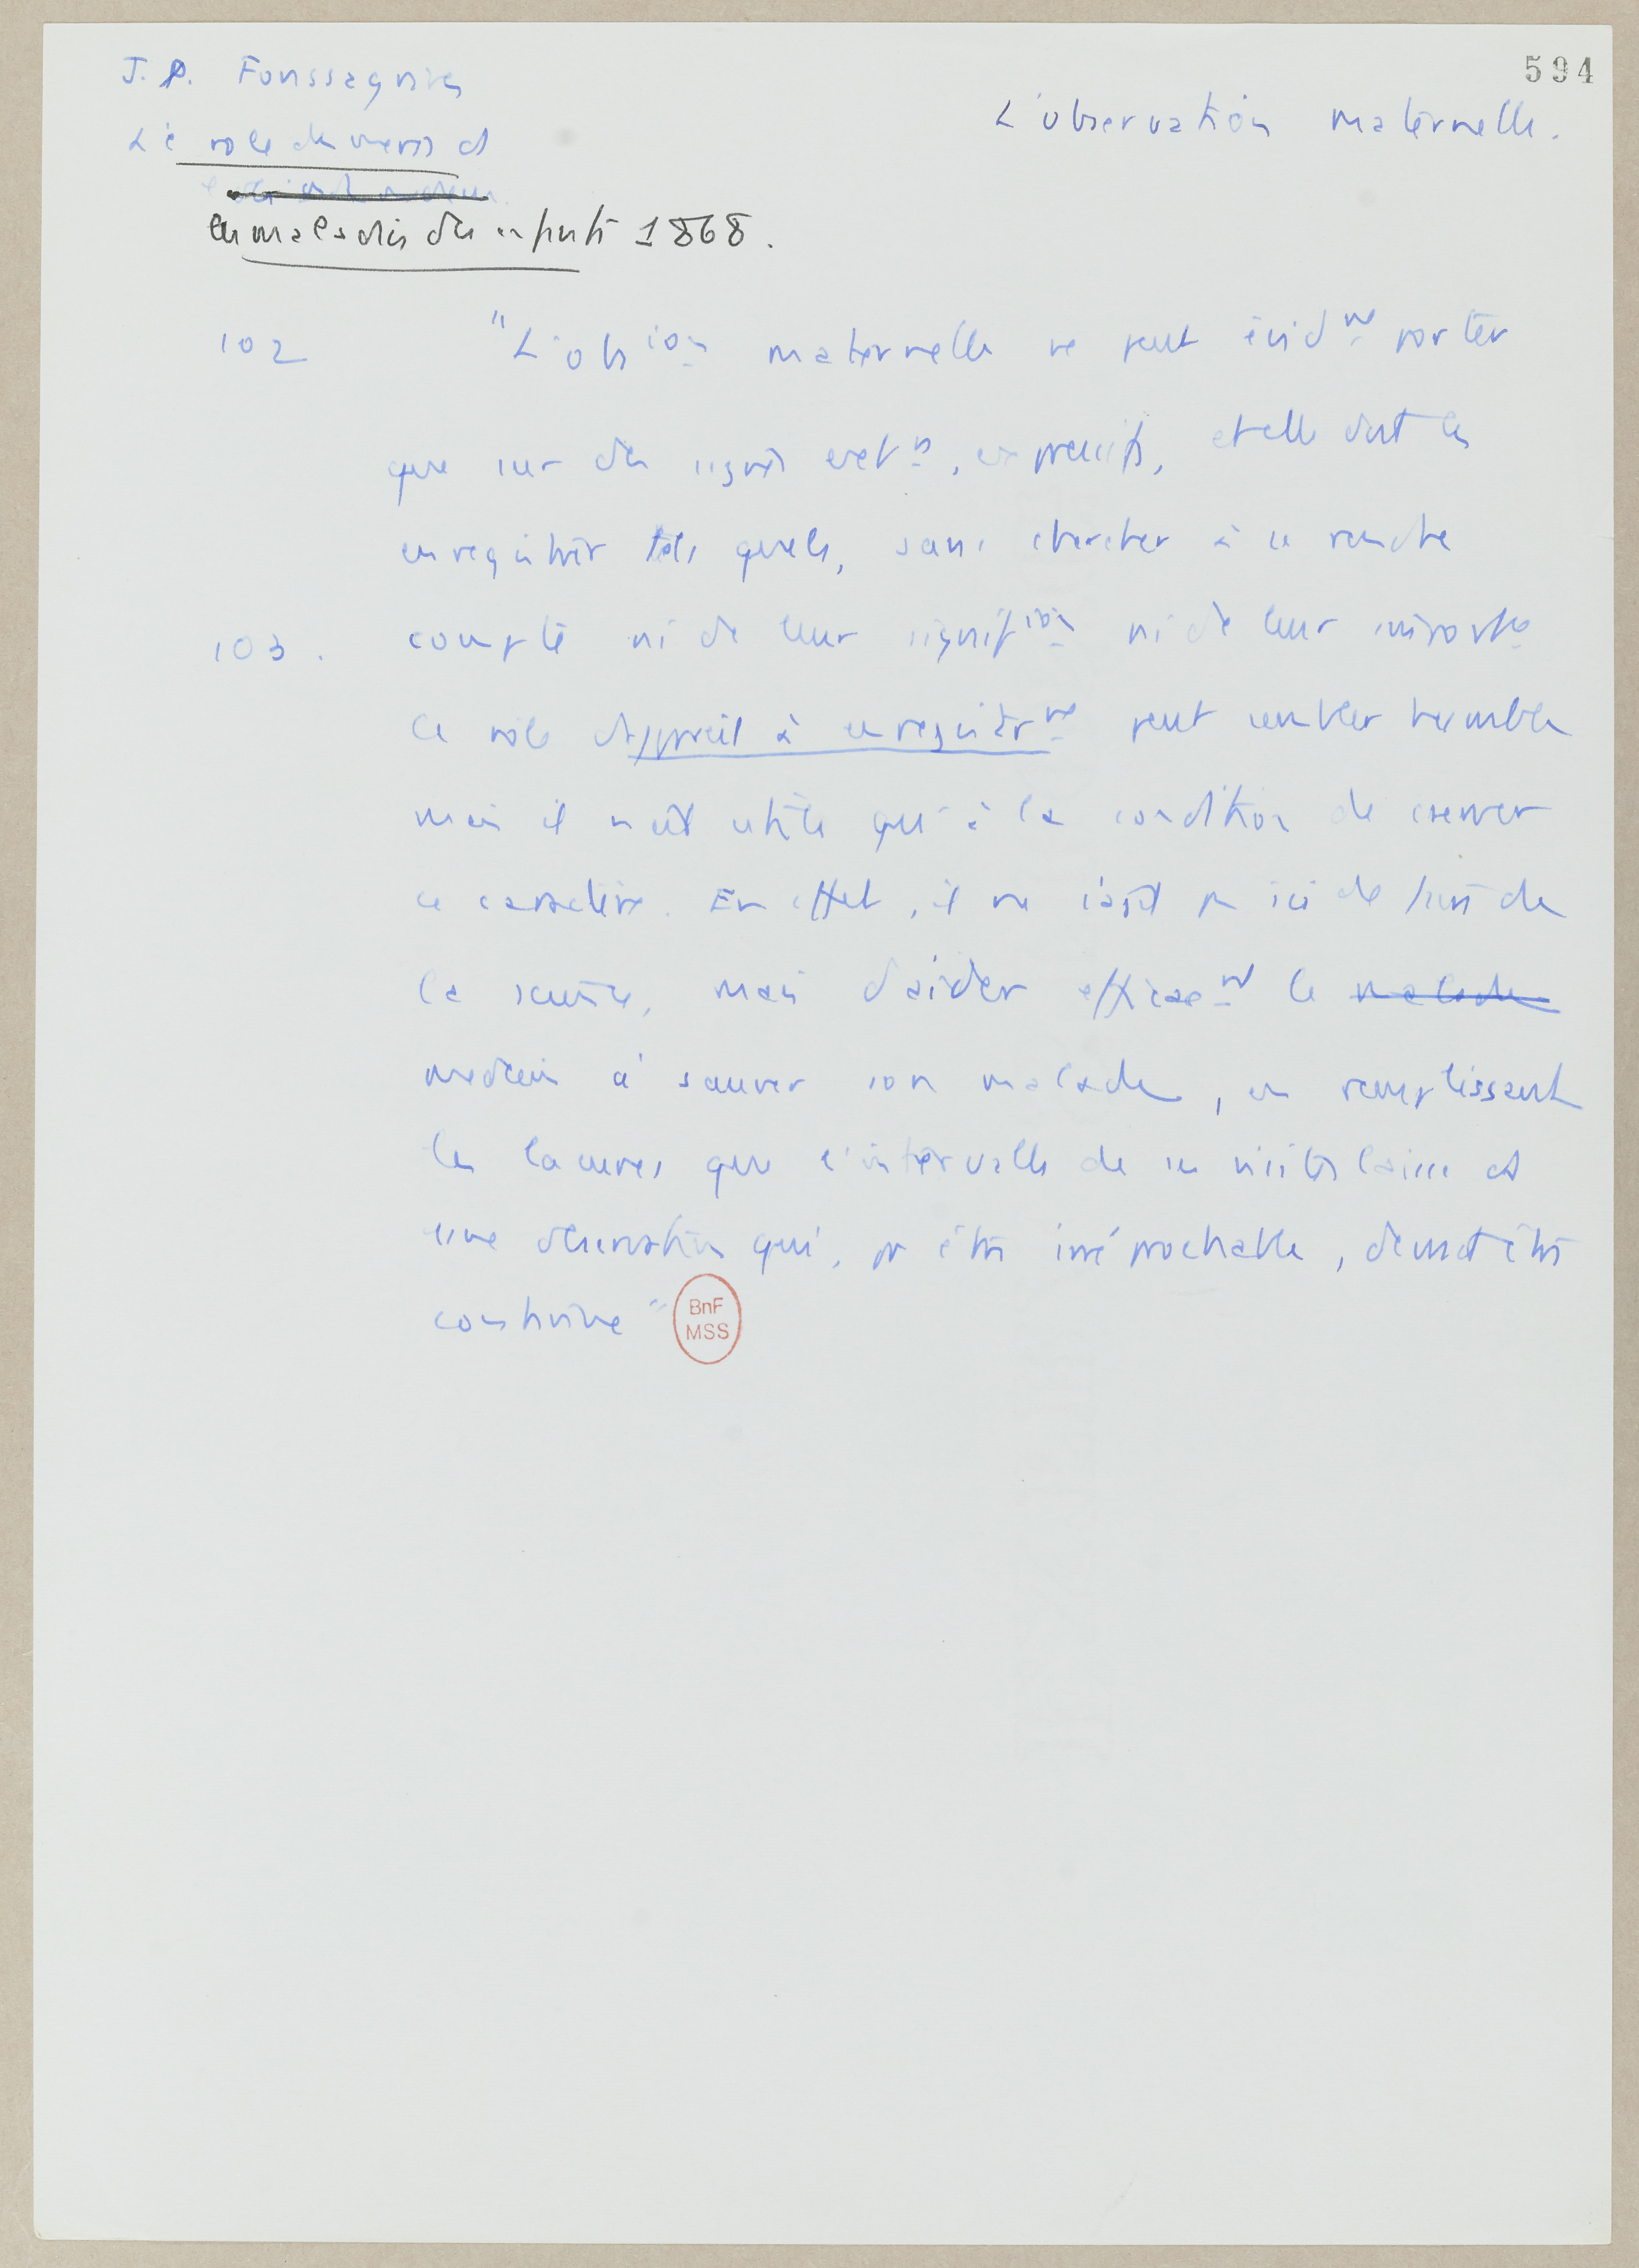 594
J. P. Fonssagrives
L'observation maternelle.
Le role des meres et
les maladies des enfants 1868.
102 "L'obs^ion maternelle ne peut évid^nt porter
que sur des signes ext^rs, expressifs, et elle doit les
enregistrer tels quels, sans chercher à se rendre
103. compte ni de leur signif^ion ni de leur import^ce
Ce role d'appareil à enregistr^nt peut sembler humble
mais il n'est utile qu'à la condition de conserver
ce caractère. En effet, il ne s'agit pas ici de faire de
la science, mais d'aider efficac^nt le malade
médecin à sauver son malade, en remplissant
les lacunes que l'intervalle de ses visites laisse ds
une observation qui, pr être irréprochable, devrait être
continue"
BnF
MSS